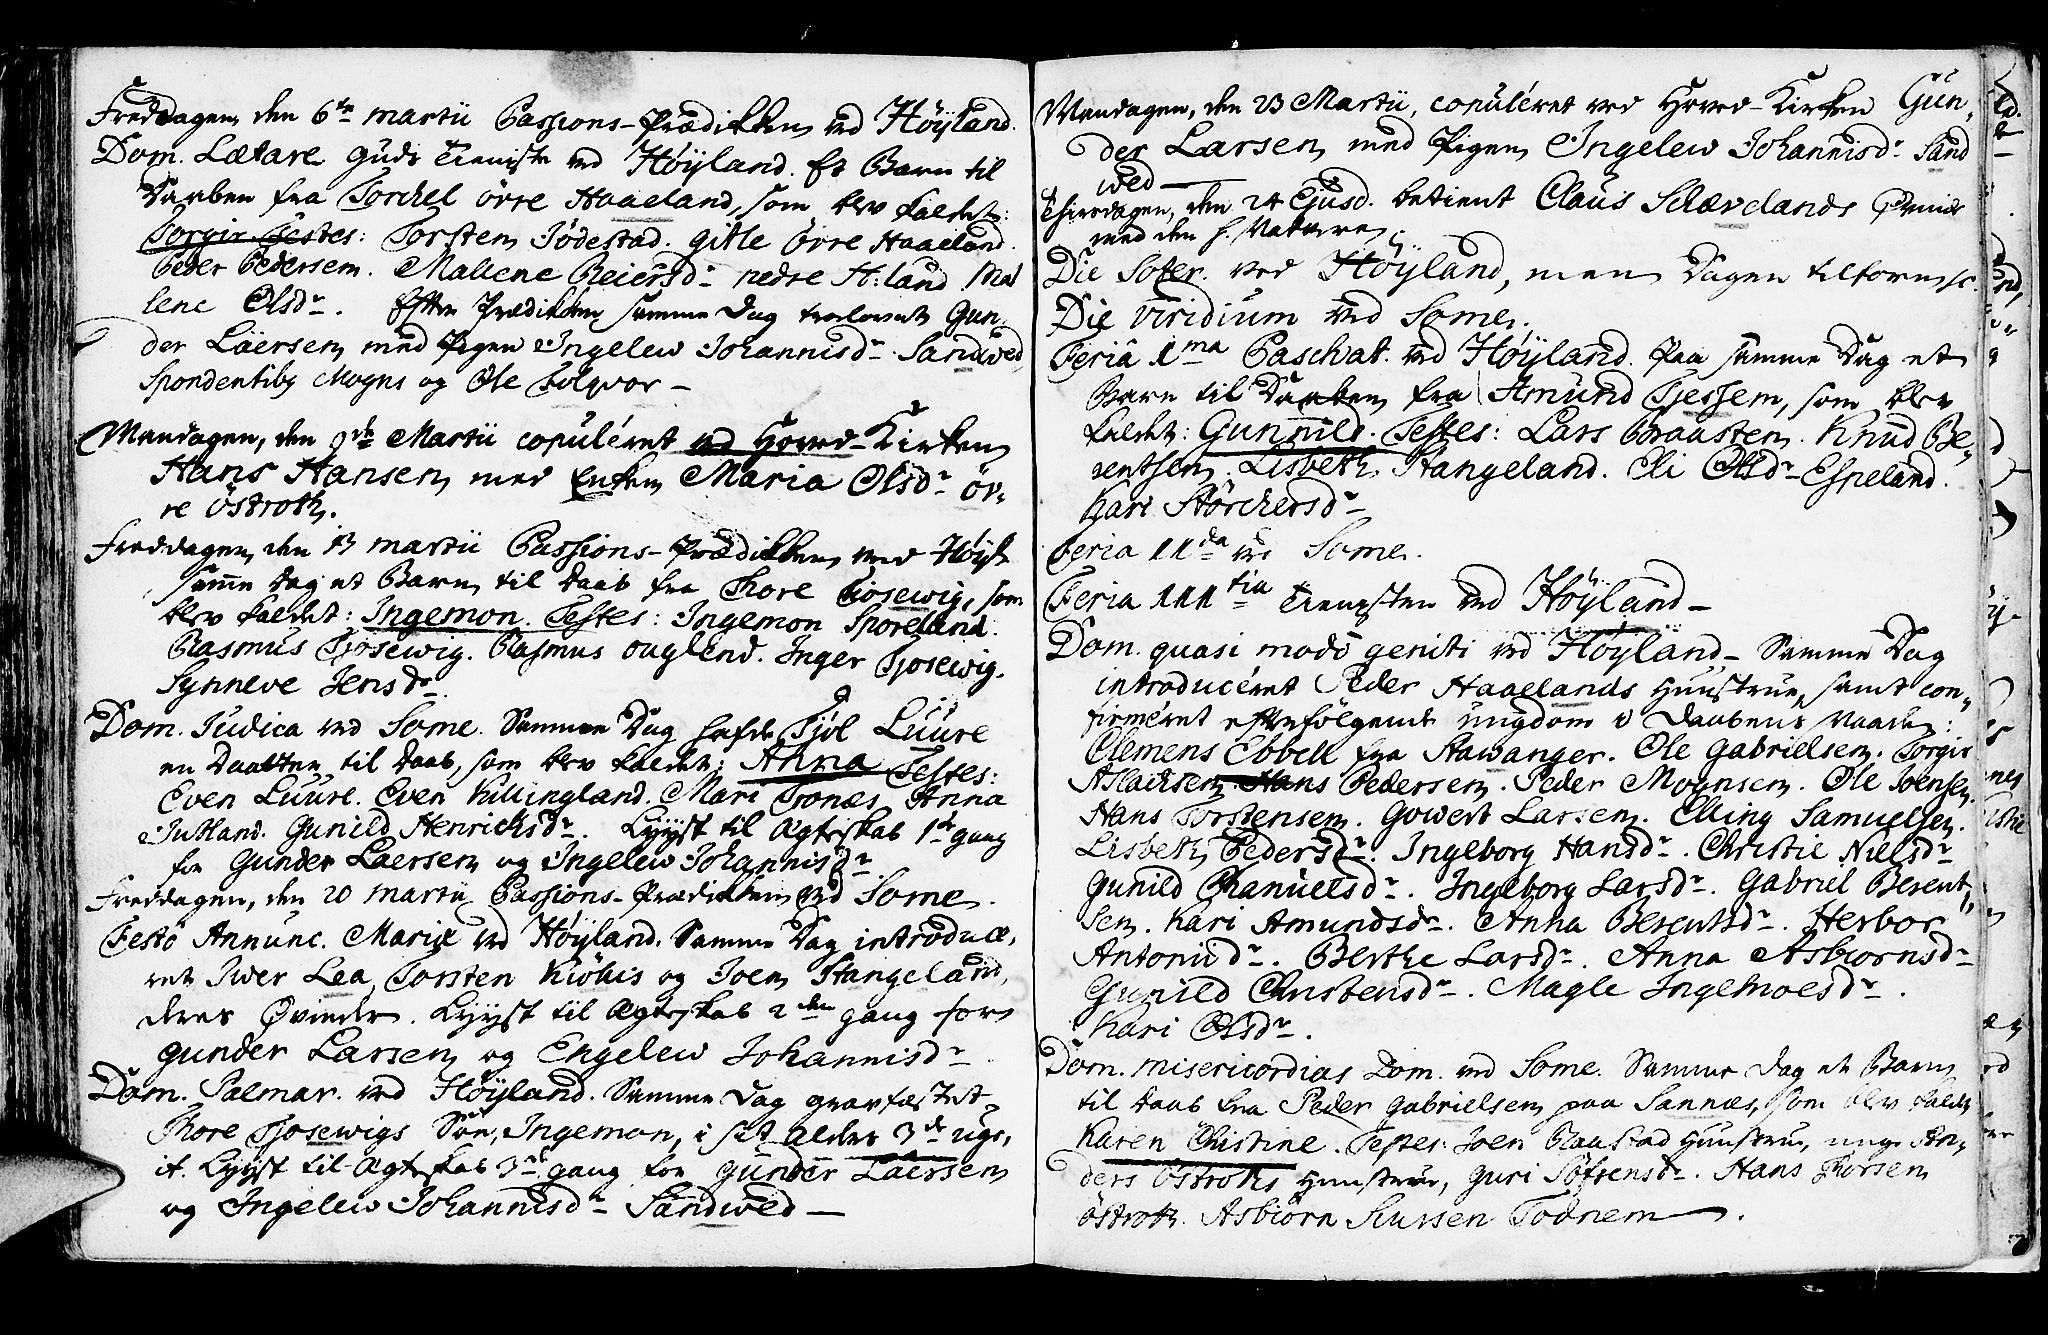 Fredagen den 6te Martii Passions-Prædikken ved Höÿland.
Dom. Lætare Guds Tieniste ved Höÿland. Et Barn til
Daaben fra Torchel övre Haaeland, som blev kaldet:
Torgir Testes: Torsten Jödestad. Gitle övre Haaeland.
Peder Pedersen. Malene Reiersdr nedre H:land Ma
lene Olsdr. Efter Prædikken samme Dag trolovet Gun,
der Läersen med Pigen Ingelew Johannisdr Sandwed,
Spondentibq Mogns og Ole Folqvor –
Mandagen, den 9de Martii copuléret ved Hoved-Kirken
Hans Hansen med Enken Maria Olsdr öv,
re Östroth.
Fredagen den 13 Martii Passions-Prædikken ved Höÿl.
samme Dag et Barn til Daab fra Thore Tiosewig, som
blev kaldet: Ingemon. Testes: Ingemon Sporeland.
Rasmus Tjosewig. Rasmus Auglend. Inger Tjosewig.
Synneve Jensdr.
Dom. Judica ved Some. Samme Dag hafde Tjöl Luure
en Daatter til Daab, som blev kaldet: Anna Testes:
Even Luure. Even Killingland. Mari Tronæs Anna
Jutland. Gunild Henrichsdr. Lyyst til Ægteskab 1te gang
for Gunder Laersen og Ingelew Johannisdr
Fredagen, den 20 Martii Passions-Prædikken ved Some.
Festo Annunc. Mariæ ved Höÿland. Samme Dag introduce,
ret Iwer Lea, Torsten Kiöhis og Joen Stangeland,
deres Qvinder. Lyyst til Ægteskab 2den gang for
Gunder Larsen og Engelew Johannisdr
Dom. Palmar. ved Höÿland. Samme Dag gravfæstet
Thore Tjosewigs Sön, Ingemon, i sit Alders 3de uge,
it. Lyyst til Ægteskab 3de gang for Gunder Laersen
og Ingelew Johannisdr Sandwed –
Mandagen, den 23 Martii, copuléret ved Hoved-Kirken Gun,
der Larsen med Pigen Ingelew Johannisdr Sand
wed –
Tirsdagen, den 24 Ejusd. betient Claus Skævelands Qvinde
med den h. Nadvere.
Die Solen. ved Höÿland, men Dagen tilforn
Die Viridium ved Some.
Feria 1ma Paschat. ved Höÿland. Paa samme Dag et
Barn til Daaben fra Amund Tjessem, som blev
kaldet: Gunnild. Testes: Lars Braasten. Knud Be,
rentsen. Lisbeth Stangeland. Eli Olsdr Espeland.
Kari Störchersdr
Feria IIda ved Some.
Feria IIItia Tienesten ved Höÿland –
Dom. quasi modo geniti ved Höÿland – Samme Dag
introducéret Peder Haaelands Huustrue, samt con,
firméret efterfölgende ungdom i Daabens Naade:
Clemens Ebbell fra Stawanger. Ole Gabrielsen. Torgir
Aslacksen. Hans Pedersen. Peder Mognsen. Ole Ivensen.
Hans Torstensen. Gowert Larsen. Elling Samuelsen.
Lisbeth Pedersdr. Ingeborg Hansdr. Christie Nielsdr
Gunild Chanuelsdr. Ingeborg Larsdr. Gabriel Berent,
sen. Kari Amundsdr. Anna Berentsdr. Herbor
Antonisdr. Berthe Larsdr. Anna Asbiornsdr
Gunild Christensdr. Magle Ingelnoesdr.
Kari Olsdr.
Dom. Misericordias Dom. ved Some. Samme Dag et Barn
til Daab fra Peder Gabrielsen paa Sannæs, som blev kaldt
Karen Christine. Testes: Joen Raastad Huustrue, unge An,
ders Östroths Huustrue, Guri Söfrensdr. Hans Thorsen
östroth. Asbiörn Siursen Todnem –.